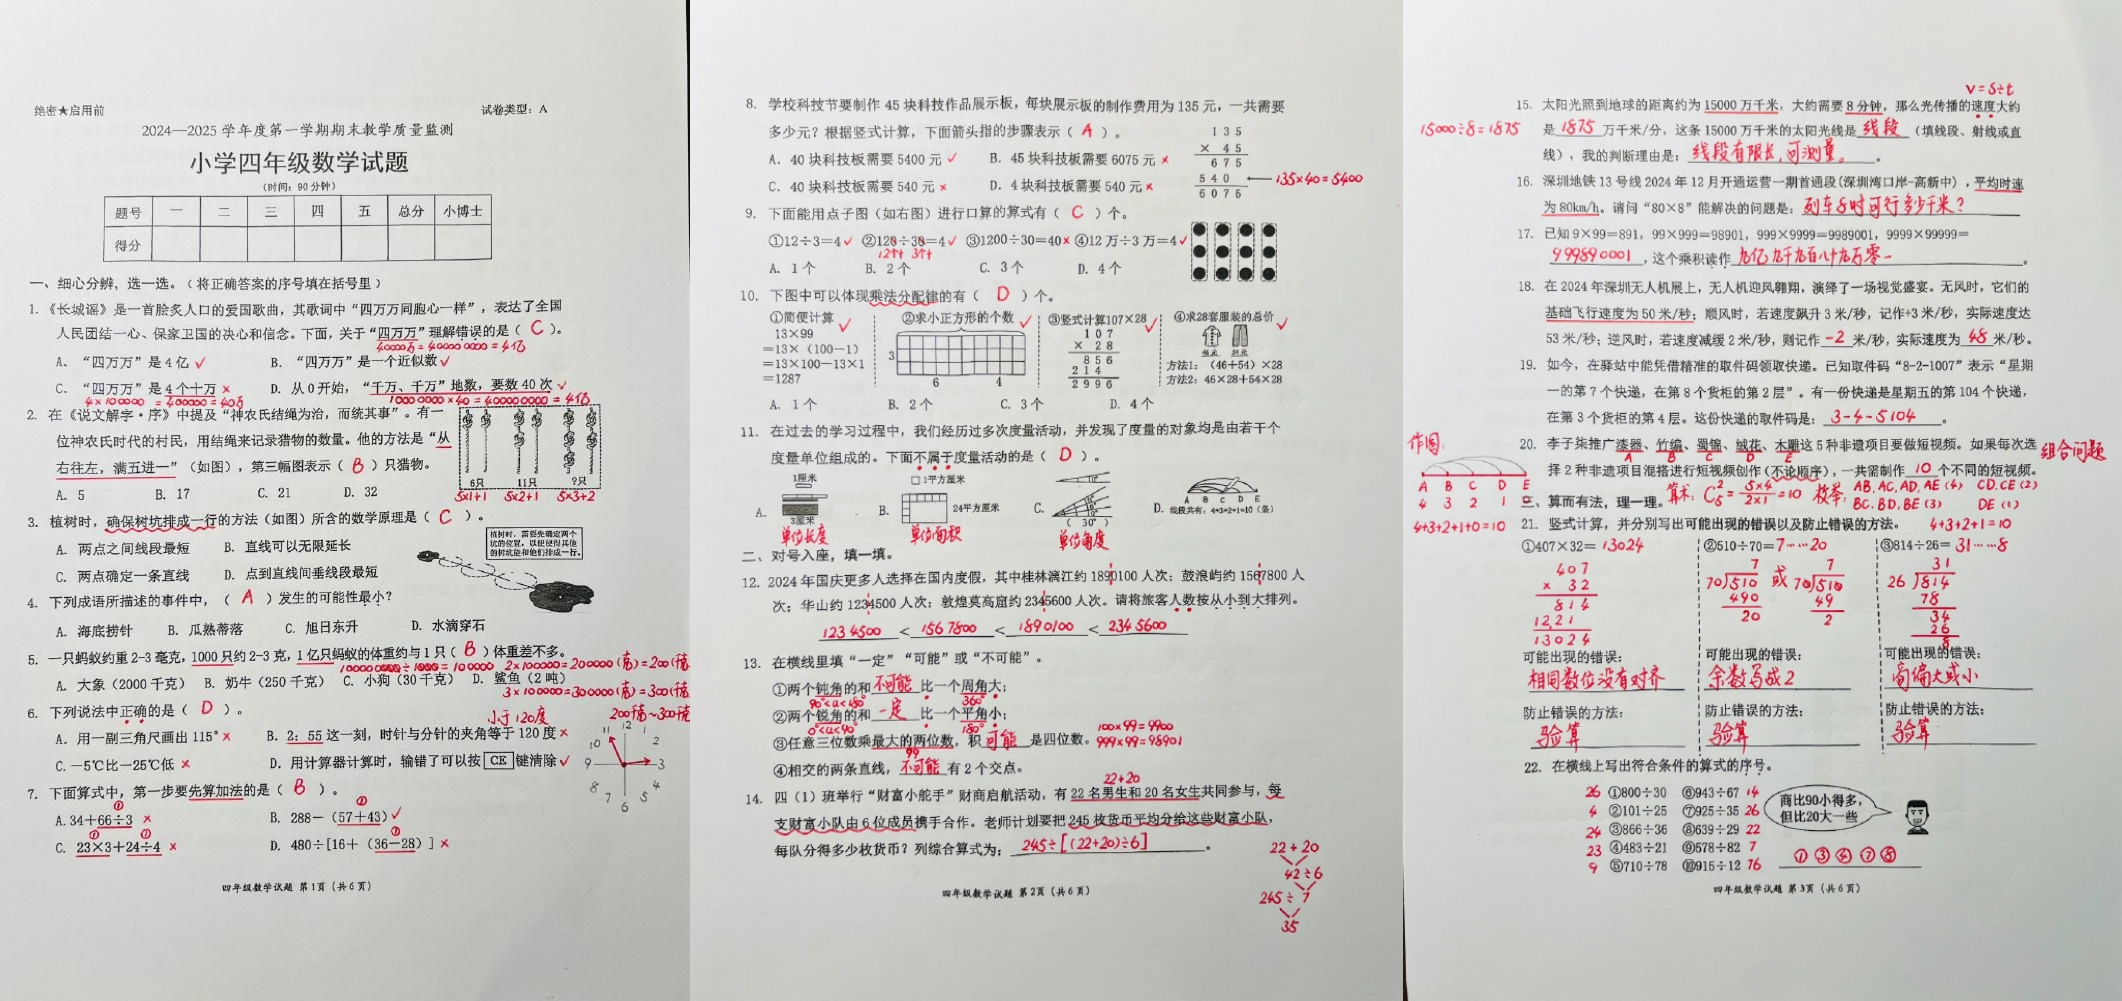 绝密★启用前
试卷类型：A
2024—2025 学年度第一学期期末教学质量监测
小学四年级数学试题
（时间：90 分钟）
题号 一 二 三 四 五 总分 小博士
得分
一、细心分辨，选一选。（将正确答案的序号填在括号里）
1.《长城谣》是一首脍炙人口的爱国歌曲，其歌词中“四万万同胞心一样”，表达了全国
人民团结一心、保家卫国的决心和信念。下面，关于“四万万”理解错误的是（ C ）。
40000万=400000000=4亿
A. “四万万”是 4 亿 ✓ B. “四万万”是一个近似数 ✓
C. “四万万”是 4 个十万 × D. 从 0 开始，“千万、千万”地数，要数 40 次 ✓
4×100000=400000=40万 10000000×40=400000000=4亿
2. 在《说文解字·序》中提及“神农氏结绳为治，而统其事”。有一
位神农氏时代的村民，用结绳来记录猎物的数量。他的方法是“从
右往左，满五进一”（如图），第三幅图表示（ B ）只猎物。
6只 11只 ?只
A. 5 B. 17 C. 21 D. 32
5×1+1 5×2+1 5×3+2
3. 植树时，确保树坑排成一行的方法（如图）所含的数学原理是（ C ）。
植树时，需要先确定两个
坑的位置，以便使得其他
的树坑能和他们排成一行。
A. 两点之间线段最短 B. 直线可以无限延长
C. 两点确定一条直线 D. 点到直线间垂线段最短
4. 下列成语所描述的事件中，（ A ）发生的可能性最小？
A. 海底捞针 B. 瓜熟蒂落 C. 旭日东升 D. 水滴穿石
5. 一只蚂蚁约重 2-3 毫克，1000 只约 2-3 克，1 亿只蚂蚁的体重约与 1 只（ B ）体重差不多。
100000000÷1000=100000 2×100000=200000(克)=200(千克)
A. 大象（2000 千克） B. 奶牛（250 千克） C. 小狗（30 千克） D. 鲨鱼（2 吨）
3×100000=300000(克)=300(千克)
6. 下列说法中正确的是（ D ）。
小于120度 200千克~300千克
A. 用一副三角尺画出 115° × B. 2：55 这一刻，时针与分针的夹角等于 120 度 ×
C. -5℃比-25℃低 × D. 用计算器计算时，输错了可以按 CE 键清除 ✓
12 1 2 3 4 5 6 7 8 9 10 11
7. 下面算式中，第一步要先算加法的是（ B ）。
① ①
A. 34+66÷3 × B. 288-（57+43） ✓
① ① ①
C. 23×3+24÷4 × D. 480÷[16+（36-28）] ×
四年级数学试题 第 1页（共 6 页）
8. 学校科技节要制作 45 块科技作品展示板，每块展示板的制作费用为 135 元，一共需要
多少元？根据竖式计算，下面箭头指的步骤表示（ A ）。
135
× 45
675
540 ← 135×40=5400
6075
A. 40 块科技板需要 5400 元 ✓ B. 45 块科技板需要 6075 元 ×
C. 40 块科技板需要 540 元 × D. 4 块科技板需要 540 元 ×
9. 下面能用点子图（如右图）进行口算的算式有（ C ）个。
①12÷3=4 ✓ ②120÷30=4 ✓ ③1200÷30=40 × ④12 万÷3 万=4 ✓
12个十 3个十
A. 1 个 B. 2 个 C. 3 个 D. 4 个
10. 下图中可以体现乘法分配律的有（ D ）个。
①简便计算 ✓
13×99
=13×（100-1）
=13×100-13×1
=1287
②求小正方形的个数 ✓
3
6 4
③竖式计算107×28 ✓
107
× 28
856
214
2996
④求28套服装的总价 ✓
46元 54元
方法1：（46+54）×28
方法2：46×28+54×28
A. 1 个 B. 2 个 C. 3 个 D. 4 个
11. 在过去的学习过程中，我们经历过多次度量活动，并发现了度量的对象均是由若干个
度量单位组成的。下面不属于度量活动的是（ D ）。
A. 1厘米 3厘米
B. 1平方厘米 24平方厘米
C. 10° （ 30° ）
D. A B C D E 线段共有：4+3+2+1=10（条）
单位长度 单位面积 单位角度
二、对号入座，填一填。
12. 2024 年国庆更多人选择在国内度假，其中桂林漓江约 1890100 人次；鼓浪屿约 1567800 人
次；华山约 1234500 人次；敦煌莫高窟约 2345600 人次。请将旅客人数按从小到大排列。
1234500 < 1567800 < 1890100 < 2345600
13. 在横线里填“一定”“可能”或“不可能”。
①两个钝角的和 不可能 比一个周角大；
90°<a<180° 360°
②两个锐角的和 一定 比一个平角小；
0°<a<90° 180° 100×99=9900
③任意三位数乘最大的两位数，积 可能 是四位数。 999×99=98901
99
④相交的两条直线，不可能 有 2 个交点。
22+20
14. 四（1）班举行“财富小舵手”财商启航活动，有 22 名男生和 20 名女生共同参与，每
支财富小队由 6 位成员携手合作。老师计划要把 245 枚货币平均分给这些财富小队，
每队分得多少枚货币？列综合算式为： 245÷[(22+20)÷6] 。
22+20
42÷6
245÷7
35
四年级数学试题 第 2页（共 6 页）
v=s÷t
15. 太阳光照到地球的距离约为 15000 万千米，大约需要 8 分钟，那么光传播的速度大约
15000÷8=1875
是 1875 万千米/分，这条 15000 万千米的太阳光线是 线段 （填线段、射线或直
线），我的判断理由是： 线段有限长，可测量。 。
16. 深圳地铁 13 号线 2024 年 12 月开通运营一期首通段(深圳湾口岸-高新中)，平均时速
为 80km/h。请问“80×8”能解决的问题是： 列车8时可行多少千米？
17. 已知 9×99=891，99×999=98901，999×9999=9989001，9999×99999=
999890001 ，这个乘积读作 九亿九千九百八十九万零一 。
18. 在 2024 年深圳无人机展上，无人机迎风翱翔，演绎了一场视觉盛宴。无风时，它们的
基础飞行速度为 50 米/秒；顺风时，若速度飙升 3 米/秒，记作+3 米/秒，实际速度达
53 米/秒；逆风时，若速度减缓 2 米/秒，则记作 -2 米/秒，实际速度为 48 米/秒。
19. 如今，在驿站中能凭借精准的取件码领取快递。已知取件码“8-2-1007”表示“星期
一的第 7 个快递，在第 8 个货柜的第 2 层”。有一份快递是星期五的第 104 个快递，
在第 3 个货柜的第 4 层。这份快递的取件码是： 3-4-5104 。
20. 李子柒推广漆器、竹编、蜀锦、绒花、木雕这 5 种非遗项目要做短视频。如果每次选
A B C D E 组合问题
择 2 种非遗项目混搭进行短视频创作（不论顺序），一共需制作 10 个不同的短视频。
作图：
A B C D E
4 3 2 1
4+3+2+1+0=10
算术：C₅²=5×4/2×1=10 枚举：AB,AC,AD,AE(4) CD,CE(2)
BC,BD,BE(3) DE(1)
4+3+2+1=10
三、算而有法，理一理。
21. 竖式计算，并分别写出可能出现的错误以及防止错误的方法。
①407×32= 13024 ②510÷70= 7……20 ③814÷26= 31……8
407
× 32
814
1221
13024
7
70)510
490
20
或
7
70)510
49
2
31
26)814
78
34
26
8
可能出现的错误： 可能出现的错误： 可能出现的错误：
相同数位没有对齐 余数写成2 商偏大或小
防止错误的方法： 防止错误的方法： 防止错误的方法：
验算 验算 验算
22. 在横线上写出符合条件的算式的序号。
26 ①800÷30 ⑥943÷67 14
4 ②101÷25 ⑦925÷35 26
24 ③866÷36 ⑧639÷29 22
23 ④483÷21 ⑨578÷82 7
9 ⑤710÷78 ⑩915÷12 76
商比90小得多，
但比20大一些
① ③ ④ ⑦ ⑧
四年级数学试题 第 3页（共 6 页）